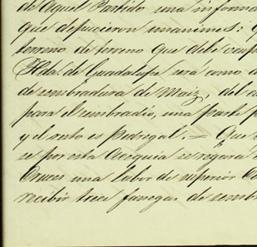 de aquel Partido una informa
que depusieron unanimes: q
terreno de terreno que debe comp
Hda. de Guadalupe será como d
de sembradura de Maiz, del c
para el sembradio, una parte p
y el resto es Pedregal; — Que
se por esta Acequia se regará
una labor de superior
recibir trece fanegas de semb